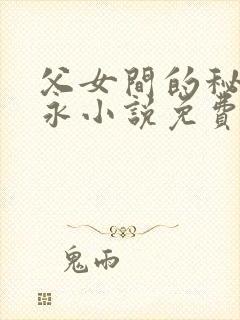 父女間的秘
永小說免費
鬼雨